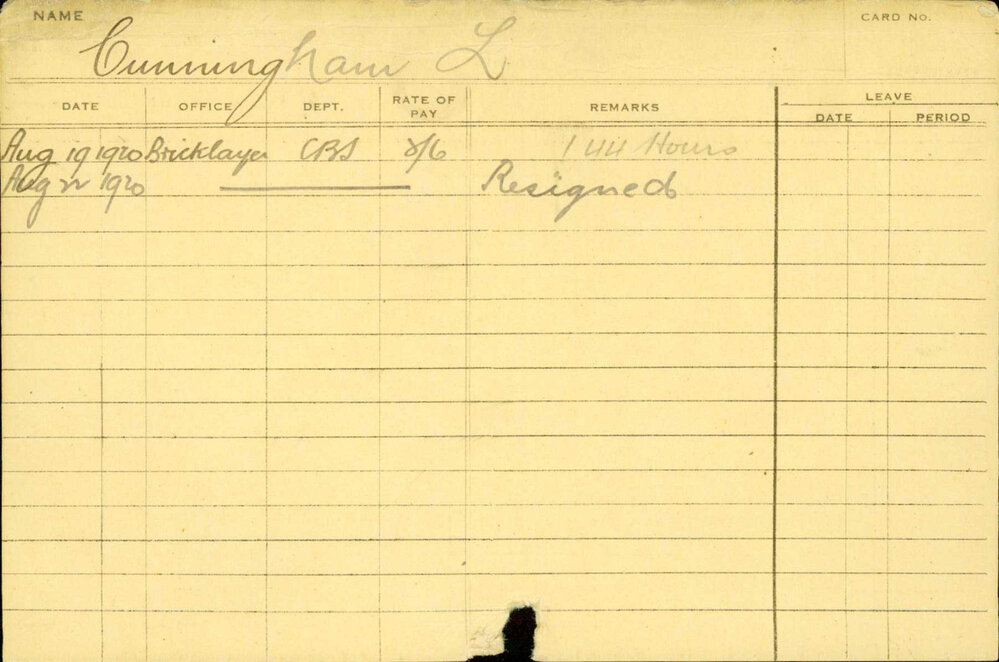 NAME CARD No.
Cunningham L
DATE OFFICE DEPT. RATE OF PAY REMARKS LEAVE
DATE PERIOD
Aug 19 1920 Bricklayer CBS 2/6 144 Hours
Aug 22 1920 Resigned